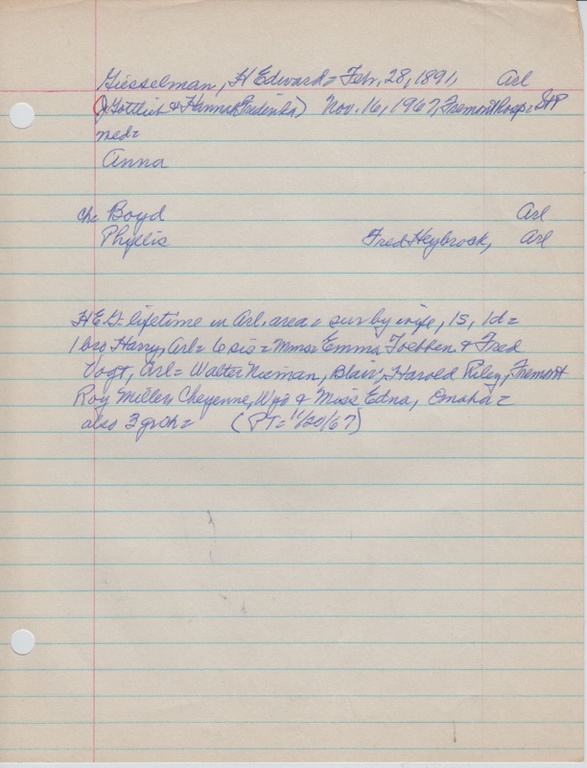 Giesselman, H Edward = Feb. 28, 1891, Arl
(Gottlieb & Hannah ) Nov. 16, 1967, Fremont Hosp =
med =
Anna
ch: Boyd Arl
Phyllis Fred Heybrock, Arl
H E G = lifetime in Arl. area = sur by wife, 1s, 1d =
1 bro Harry, Arl = 6 sis = Mmes Emma Toebben & Fred
Vogt, Arl = Walter Nieman, Blair, Harold Riley, Fremont
Roy Miller Cheyenne, Wyo & Miss Edna, Omaha =
also 3 grch = (PT = 11/20/67)